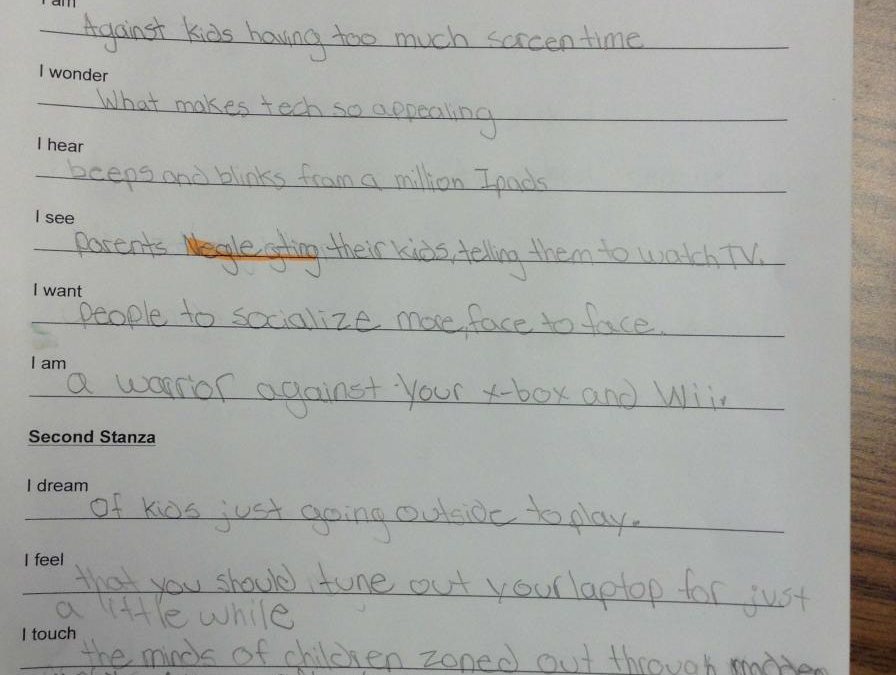 I am
Against kids having too much screen time
I wonder
What makes tech so appealing
I hear
beeps and blinks from a million Ipads
I see
parents Neglegting their kids, telling them to watch TV.
I want
people to socialize more, face to face.
I am
a warrior against your x-box and Wii.
Second Stanza
I dream
Of kids just going outside to play.
I feel
that you should, tune out your laptop for just
a little while
I touch
the minds of children zoned out through madden